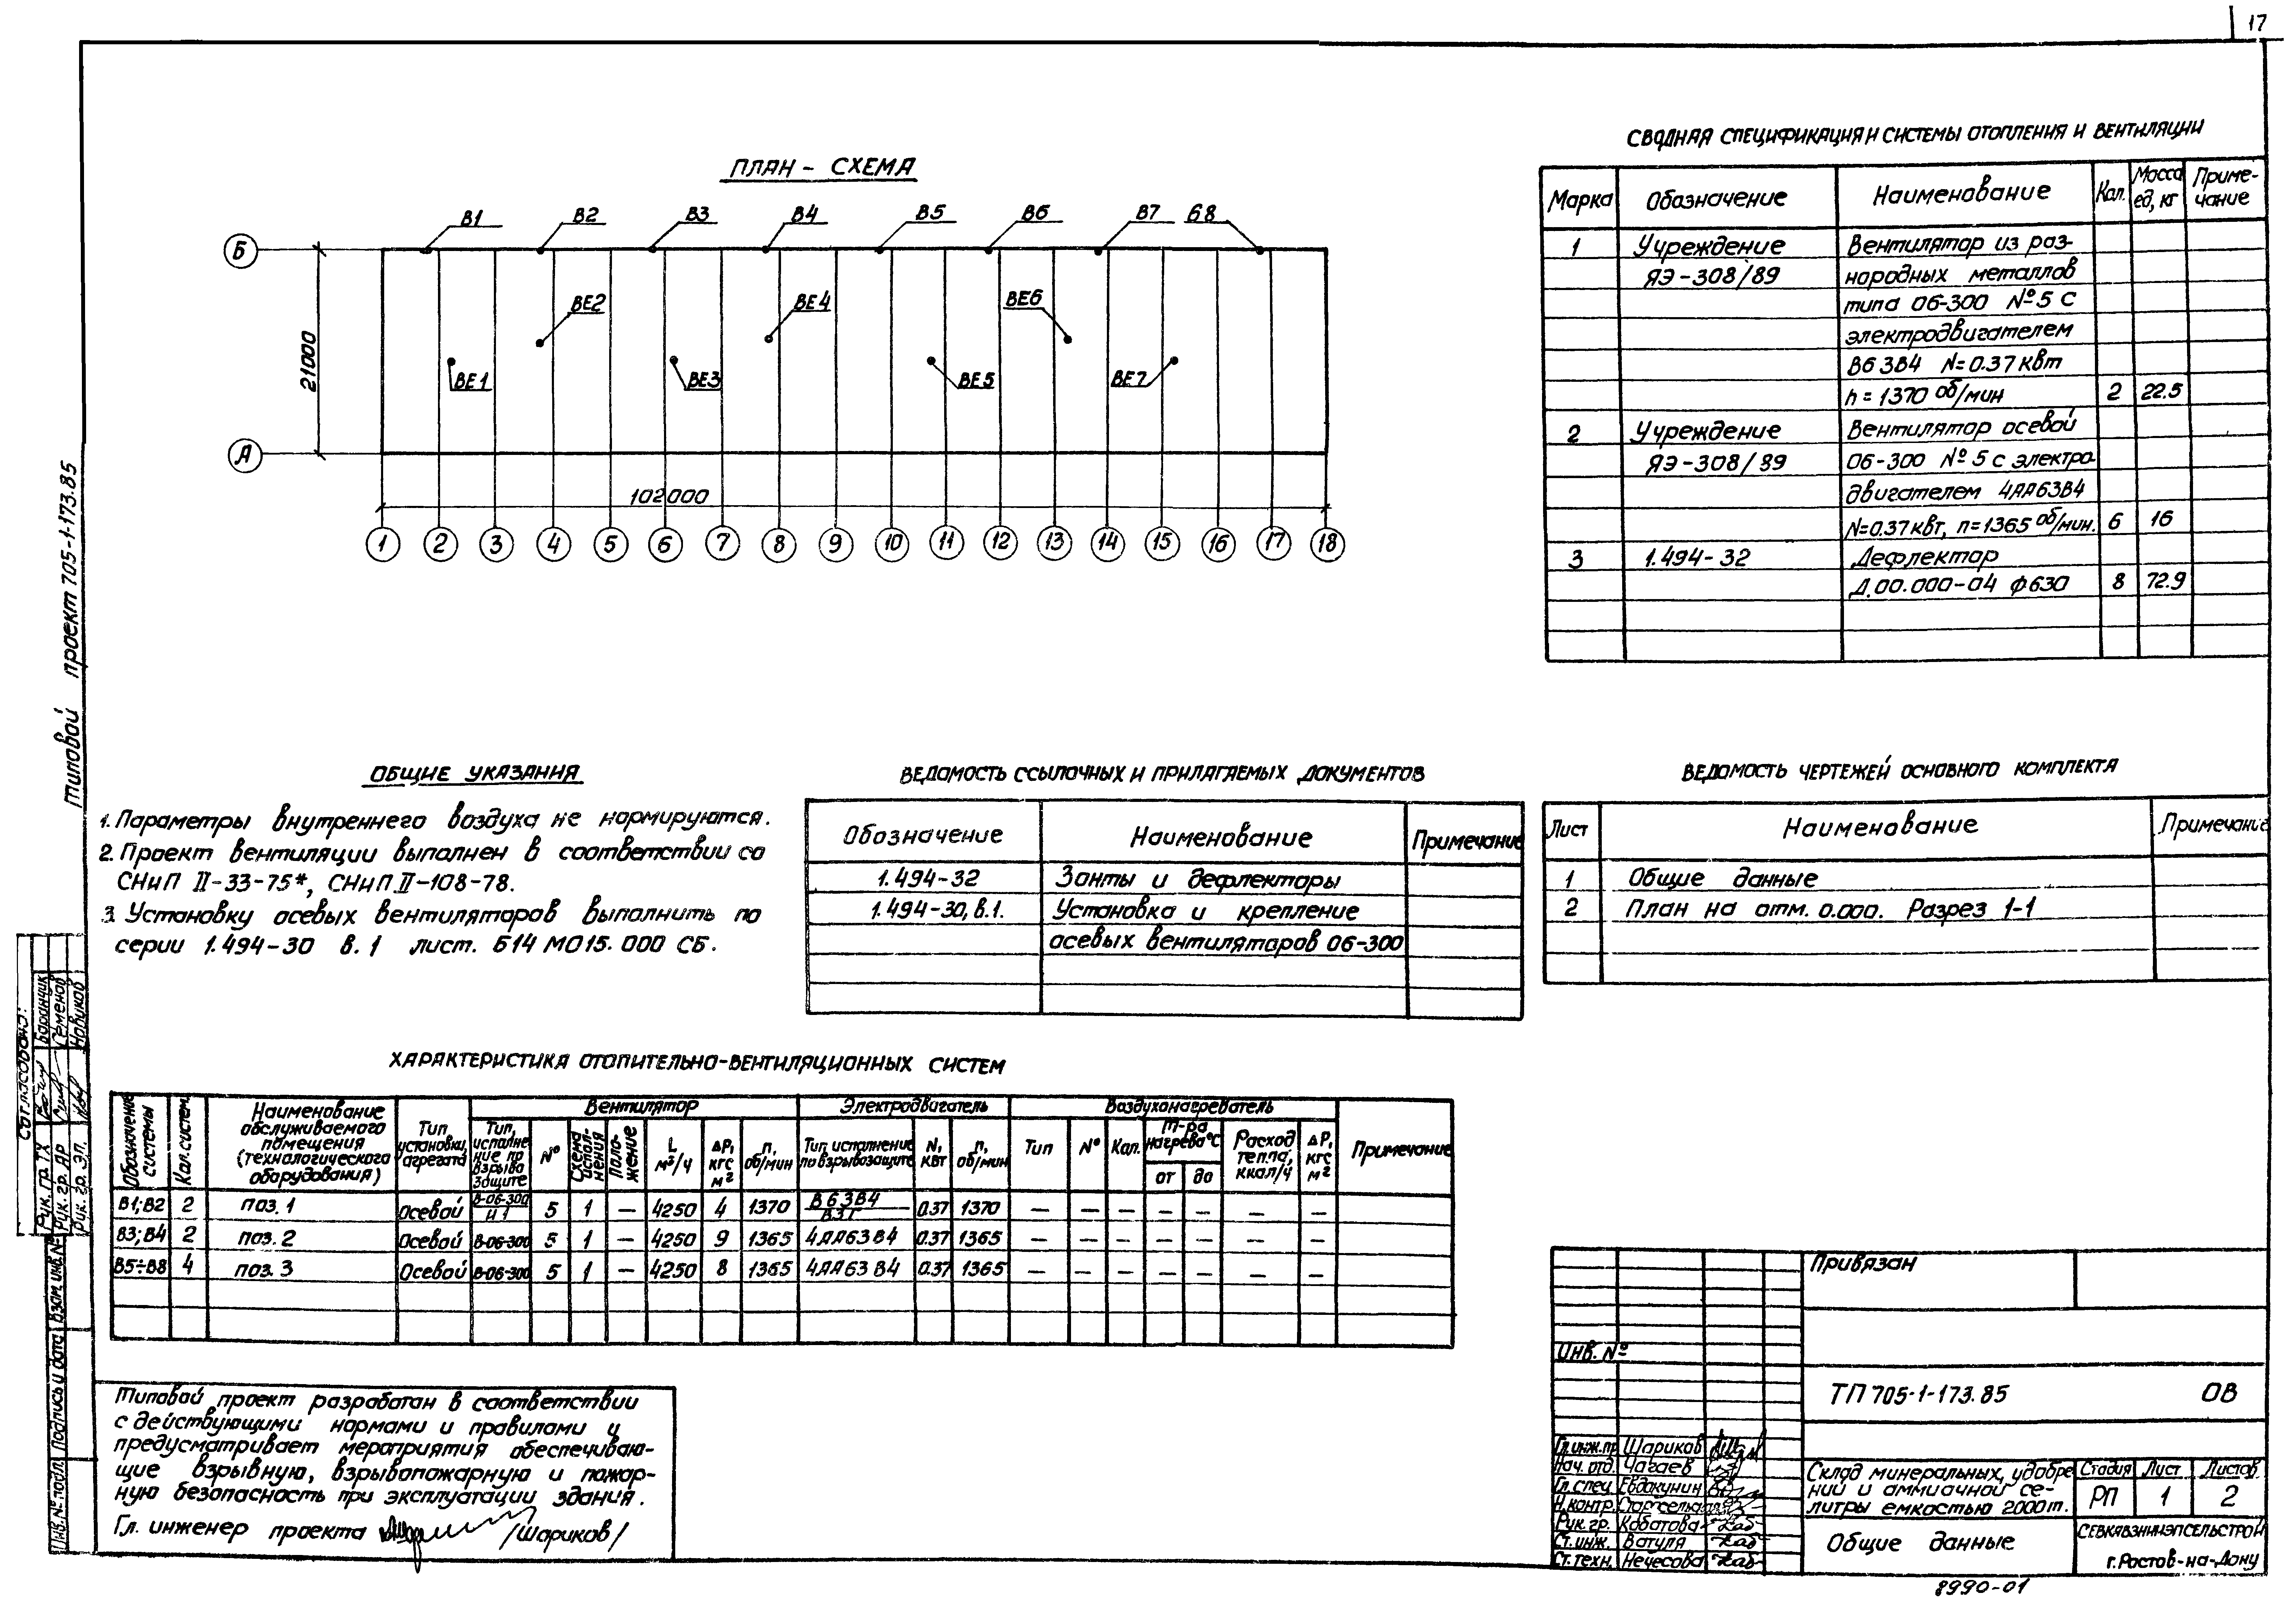 17
ПЛАН - СХЕМА
В1 В2 В3 В4 В5 В6 В7 Б8
Б
ВЕ2 ВЕ4 ВЕ6
21000
ВЕ1 ВЕ3 ВЕ5 ВЕ7
А
102000
1 2 3 4 5 6 7 8 9 10 11 12 13 14 15 16 17 18
СВОДНАЯ СПЕЦИФИКАЦИЯ И СИСТЕМЫ ОТОПЛЕНИЯ И ВЕНТИЛЯЦИИ
Марка Обозначение Наименование Кол. Масса ед, кг Приме-чание
1 Учреждение Вентилятор из раз-
ЯЭ-308/89 народных металлов
типа 06-300 №5 с
электродвигателем
В63В4 N=0.37квт
n=1370 об/мин 2 22.5
2 Учреждение Вентилятор осевой
ЯЭ-308/89 06-300 №5 с электро
двигателем 4АА63В4
N=0.37квт, n=1365 об/мин. 6 16
3 1.494-32 Дефлектор
Д.00.000-04 Ф630 8 72.9
Типовой проект 705-1-173.85
ОБЩИЕ УКАЗАНИЯ
1. Параметры внутреннего воздуха не нормируются.
2. Проект вентиляции выполнен в соответствии со
СНиП II-33-75*, СНиП.II-108-78.
3. Установку осевых вентиляторов выполнить по
серии 1.494-30 в.1 лист. Б14 МО15.000 СБ.
ВЕДОМОСТЬ ССЫЛОЧНЫХ И ПРИЛАГАЕМЫХ ДОКУМЕНТОВ
Обозначение Наименование Примечание
1.494-32 Зонты и дефлекторы
1.494-30, в.1. Установка и крепление
осевых вентиляторов 06-300
ВЕДОМОСТЬ ЧЕРТЕЖЕЙ ОСНОВНОГО КОМПЛЕКТА
Лист Наименование Примечание
1 Общие данные
2 План на отм. 0.000. Разрез 1-1
Согласовано:
Рук. гр. ТХ Баранчик
Рук. гр. АР Семенов
Рук. гр. ЭЛ. Новиков
Инв.№подл. Подпись и дата Взам.инв.№
ХАРАКТЕРИСТИКА ОТОПИТЕЛЬНО-ВЕНТИЛЯЦИОННЫХ СИСТЕМ
Обозначение системы Кол.систем Наименование обслуживаемого помещения (технологического оборудования) Тип установки, агрегата
Вентилятор Электродвигатель Воздухонагреватель Примечание
Тип, исполне ние по взрыво защите № Схема испол-нения Поло-жение L м³/ч ΔР, кгс м² n, об/мин
Тип, исполнение по взрывозащите N, квт n, об/мин
Тип № Кол. Т-ра нагрева°С от до Расход тепла, ккал/ч ΔР, кгс м²
В1;В2 2 поз. 1 Осевой В-06-300 И1 5 1 — 4250 4 1370 В63В4 В3Г 0.37 1370 — — — — — — —
В3;В4 2 поз. 2 Осевой В-06-300 5 1 — 4250 9 1365 4АА63В4 0.37 1365 — — — — — — —
В5÷В8 4 поз. 3 Осевой В-06-300 5 1 — 4250 8 1365 4АА63В4 0.37 1365 — — — — — — —
Типовой проект разработан в соответствии
с действующими нормами и правилами и
предусматривает мероприятия обеспечиваю-
щие взрывную, взрывопожарную и пожар-
ную безопасность при эксплуатации здания.
Гл. инженер проекта /Шариков/
Привязан
Инв. №
ТП 705-1-173.85 ОВ
Гл.инж.пр Шариков
Нач. отд. Чагаев
Гл.спец. Евдокунин
Н.контр.
Рук.гр. Кобатова
Ст.инж. Ватуля
Ст.техн. Нечесова
Склад минеральных, удобре
ний и аммиачной се-
литры емкостью 2000т.
Стадия Лист Листов
РП 1 2
Общие данные
СЕВКАВЗНИИЭПСЕЛЬСТРОЙ
г.Ростов-на-Дону
8990-01